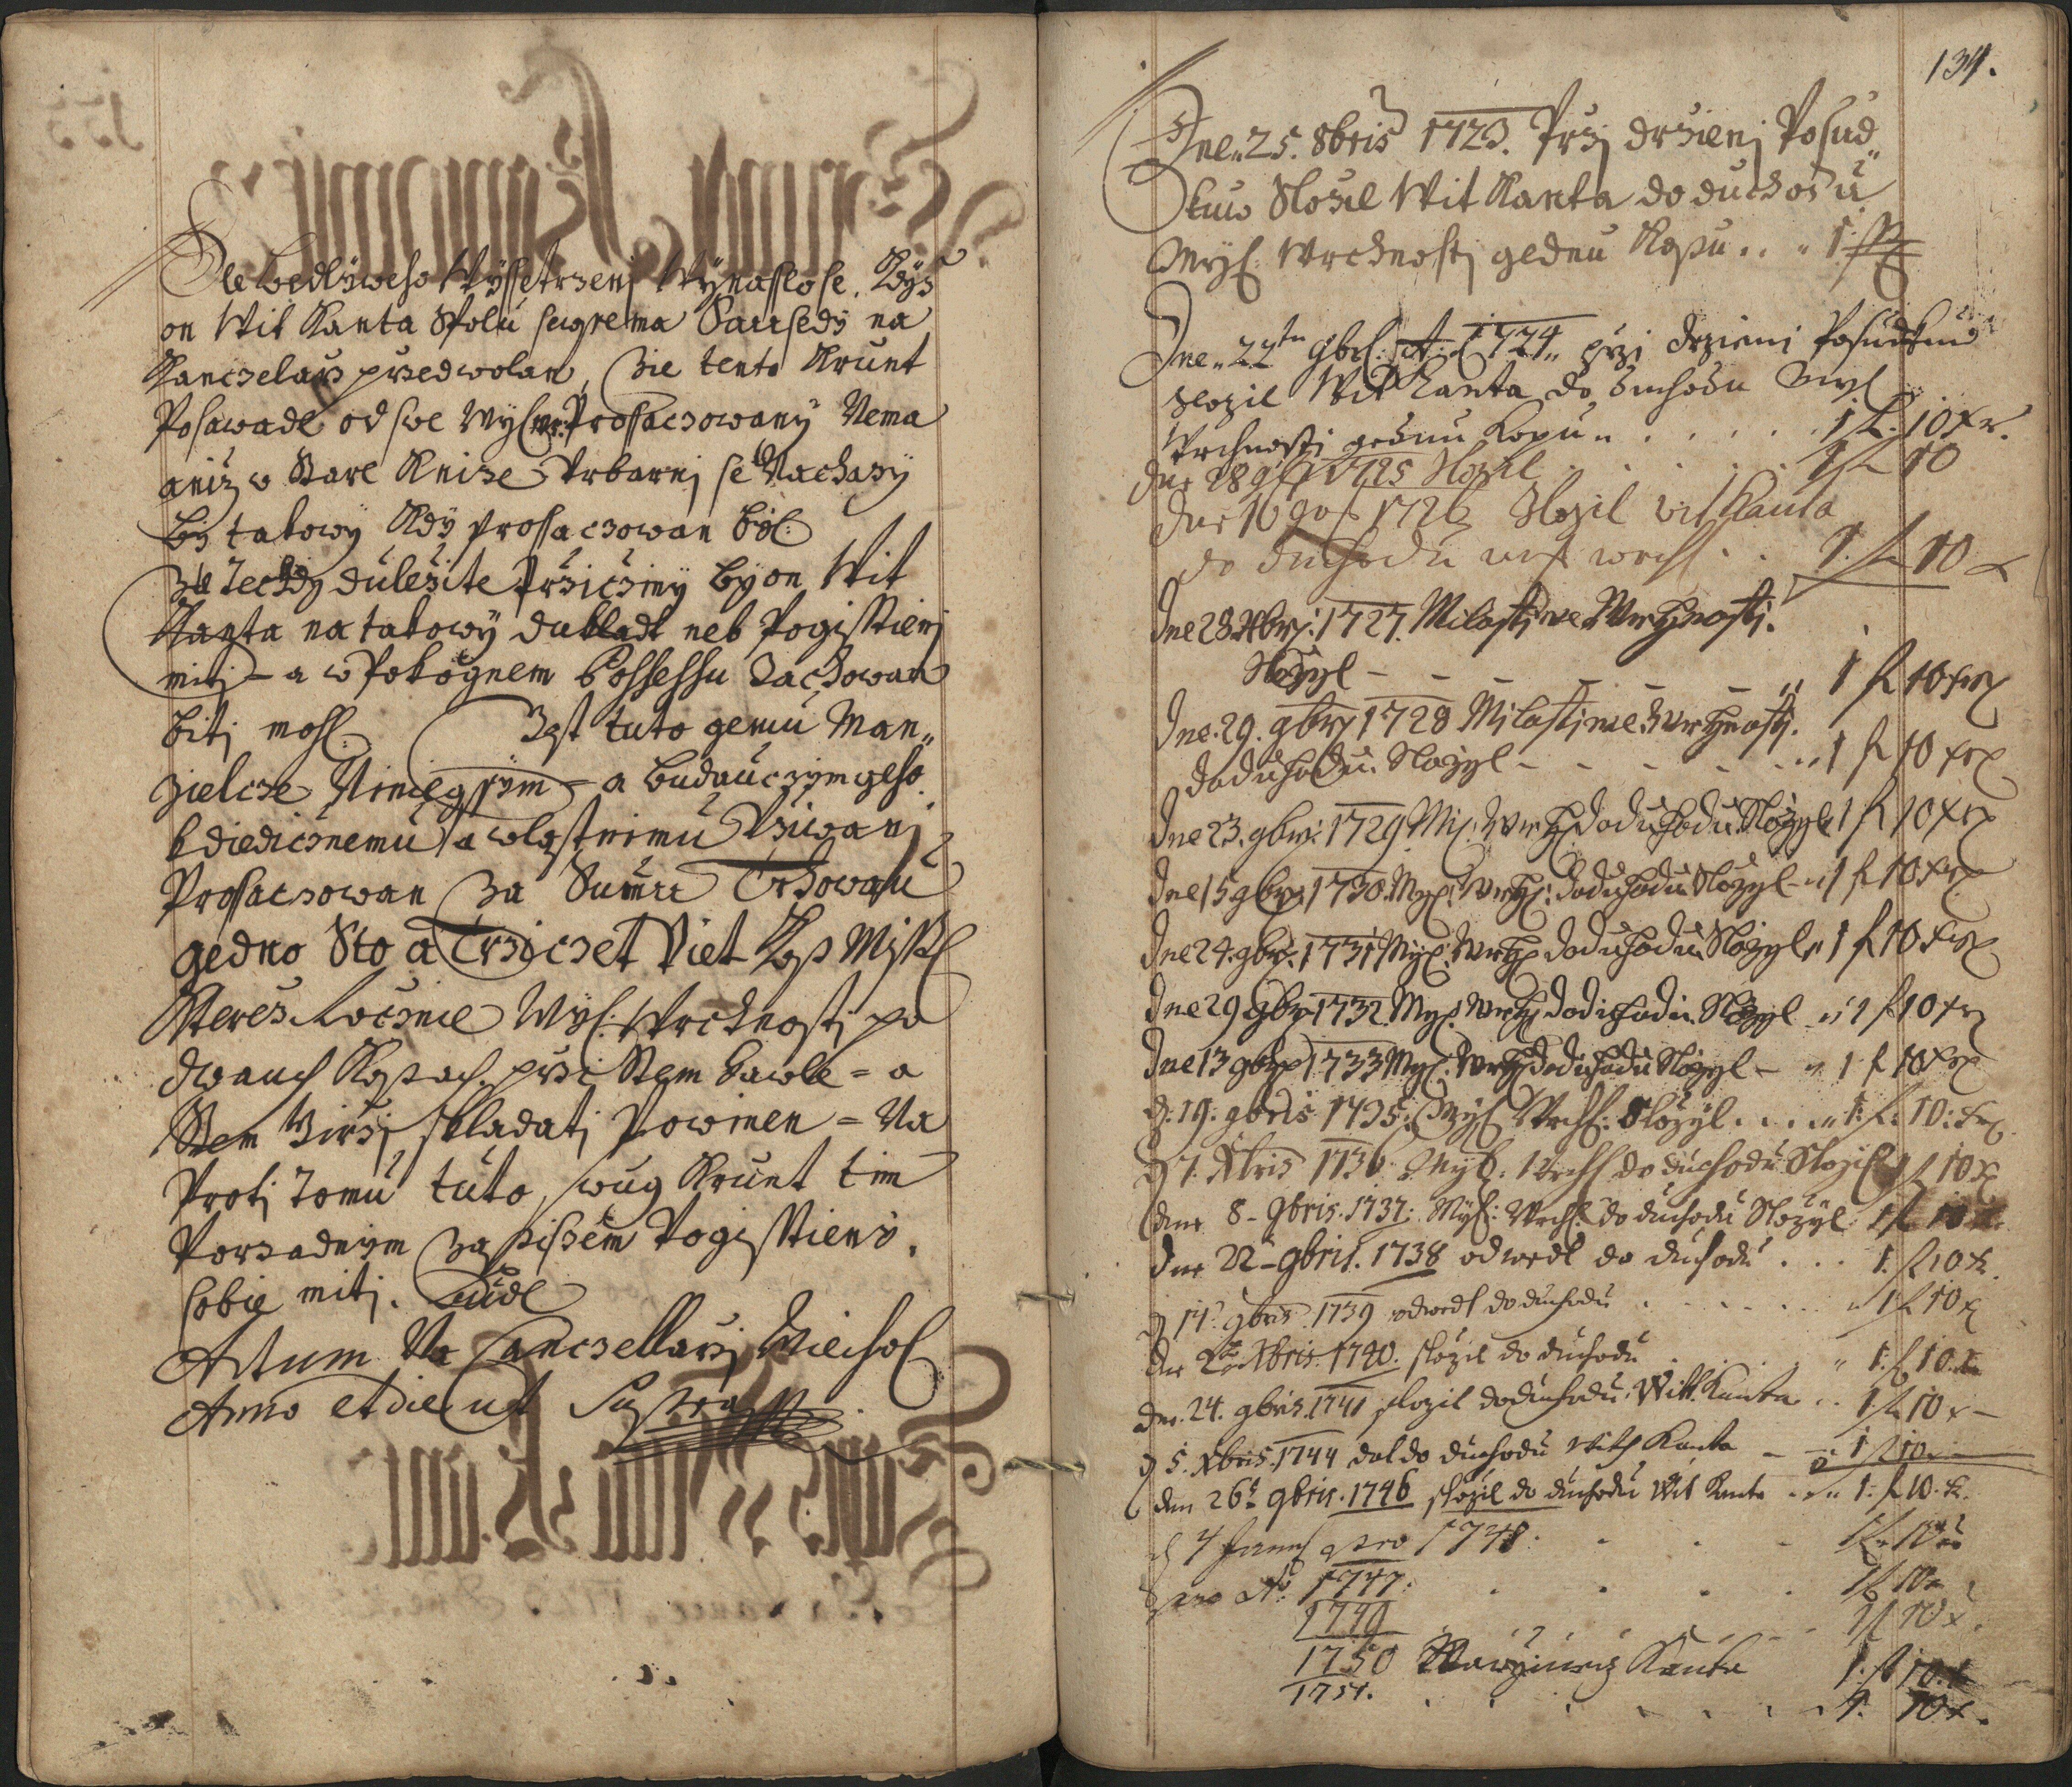 Dle bedlyweho Wyssetrzenj Wynasslo se, Kdyz
on Wit Kanta Spolu sugrema Saussedy na
Kanczelarz przedwolan, Zie tento Krunt
Posawade od swe Wys: Prossaczowany Nema
aniz w Stare Knize Vrbarnj se Nachazy
by takowy Kdy prossaczowan byl:
Za Techdy dulezite Prziczziny by on Wit
Kanta na takowy dukladt neb Pogisstienj
mitj = a w Pokognem Possessu Zachowan
bitj mohl. Jest tuto gemu Man„
zielcze Nineegssym = a buducczym geho
kdiedicznemu a wlastnimu Vziwanj
Prossaczowan Za Summu Trhowau
gedno Sto a Trziczet Piet Kop Miss
Kterez Rocznie Wys: Wrchnostj po
dwauch Kopach, przi Stem Hawle = a
Stem Girzj skladatj Powinen = Na
Protj Tomu tuto, swug Krunt tim
Porzadnym Za pissem Pogisstieny,
sobie mitj.
Actum Na Canczellarzj
Anno et die ut Supra
134.
Dne 25. 8bris 1723. Przj drzienj Posud„
kuw Slozil Wit Kanta do duchodu
Wys: Wrchnostj gednu Kopu .. „ 1
Dne „ 22tn 9br: A: 1724 „ przi drzieni Posudkuw
slozil Wit Kanta do duchodu
Wrchnosti gednu Kopu „ . . . . . 1 f. 10 xr.
Dne 28 9b 1725 Slozil . . . . 1 f 10
Dne 16 9b 1726 Slozil Wit Kanta
do duchodu wrch . . 1. f 10 x
Dne 28 Xbrj: 1727. Milostiwe Wrchnosti.
Slozyl – – – – – „ 1 f 10 xr
Dne. 29. 9brj 1728 Milostiwe Wrchnosti.
doduchodu. Slozyl – – – – – „ 1 f 10 xr
Dne 23. 9brj: 1729. My: Wrch doduchodu Slozyl 1 f 10 xr
Dne 15 9brj 1730. My: Wrch: doduchodu Slozyl „ 1 f 10 xr
Dne 24. 9brj. 1731 My: Wrch doduchodu Slozyl „ 1 f 10 xr
Dne 29 9brj 1732. My: Wrch doduchodu. Slozyl „ 1 f 10 xr
Dne 13 9brj 1733 My: Wrch doduchodu Slozyl – „ 1 f 10 xr
d: 19: 9bris 1735: Wys Wrch: Slozyl . . . „ 1: f: 10: xr
d 7. Xbris 1736 Wys: Wrch do duchodu Slozil 1 f 10 x
Dne 8 – 9bris. 1737: Wys: Wrch: do duchodu Slozyl 1 f 10 x
Dne 22 – 9bris. 1738 odwedl do duchodu . . . 1. f 10 x.
d 14. 9bris. 1739 odwedl do duchodu . . . . „ 1 f 10 x
Dne 2 Xbris. 1740. slozil do duchodu . . . „ 1. f 10. x
Dne. 24. 9bris. 1741 slozil doduchodu: Witt. Kanta .. 1 f 10 x –
d 5. Xbris. 1744 dal do duchodu Wit Kanta – – 1 f 10 x
Dne 26t 9bris. 1746 slozil do duchodu Wit Kanta . . „ 1: f 10. x.
d 4 pro 1748: . . . 1 f 10 x
pro Ao: 1747: . . . . 1 f 10 x
1749 . . . . 1 f 10 x.
1750 Kanta 1. f 10. x
1751. . . . . . . 1. 10 x.